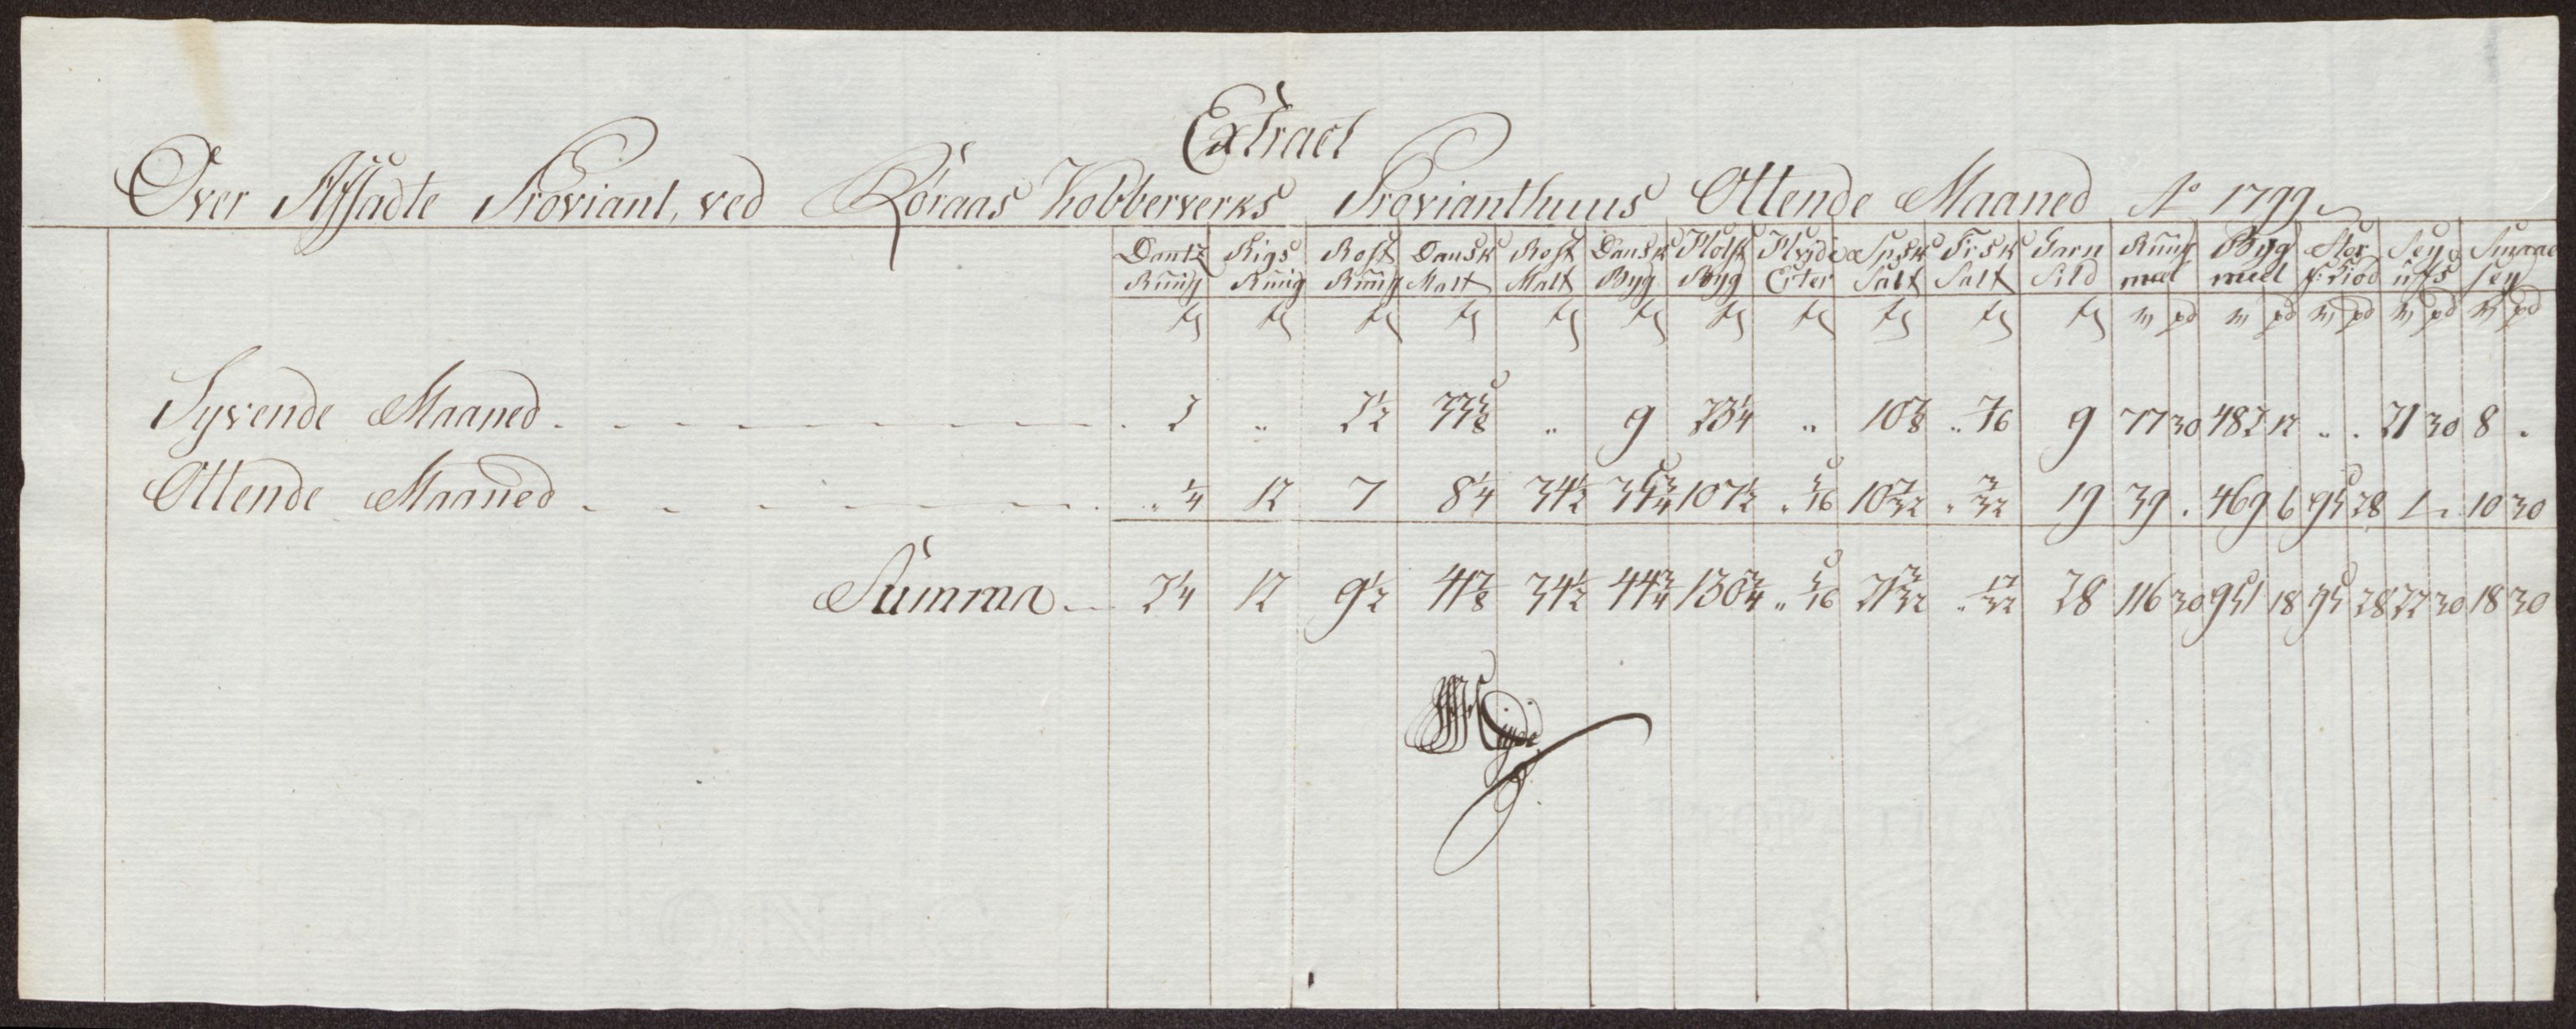 Extract
Over Afsadte Proviant, ved Röraas Kobberverks Provianthuus Ottende Maaned Aº 1799.
Dantz Rüug Rigs Rüug Rost Rüug Dansk Malt Rost Malt Dansk Byg Holst Byg Hvide Erter Spsk Salt Frsk Salt Garn Sild Rüug meel Byg meel Sey üfs Smaae sey
tr tr tr tr tr tr tr tr tr tr tr w pd w pd w pd w pd w pd
Syvende Maaned 2 " 2½ 33⅝ " 9 23¼ " 10⅞ " 7/16 9 77 30 482 12 " . 21 30 8 .
Ottende Maaned " ¼ 12 7 8¼ 34½ 35¾ 107½ " 5/16 10 7/32 " 3/32 19 39 . 469 6 95 28 1 " 10 30
Summa 2¼ 12 9½ 41⅞ 34½ 44¾ 130¾ " 5/16 21 3/32 " 17/32 28 116 30 951 18 95 28 22 30 18 30